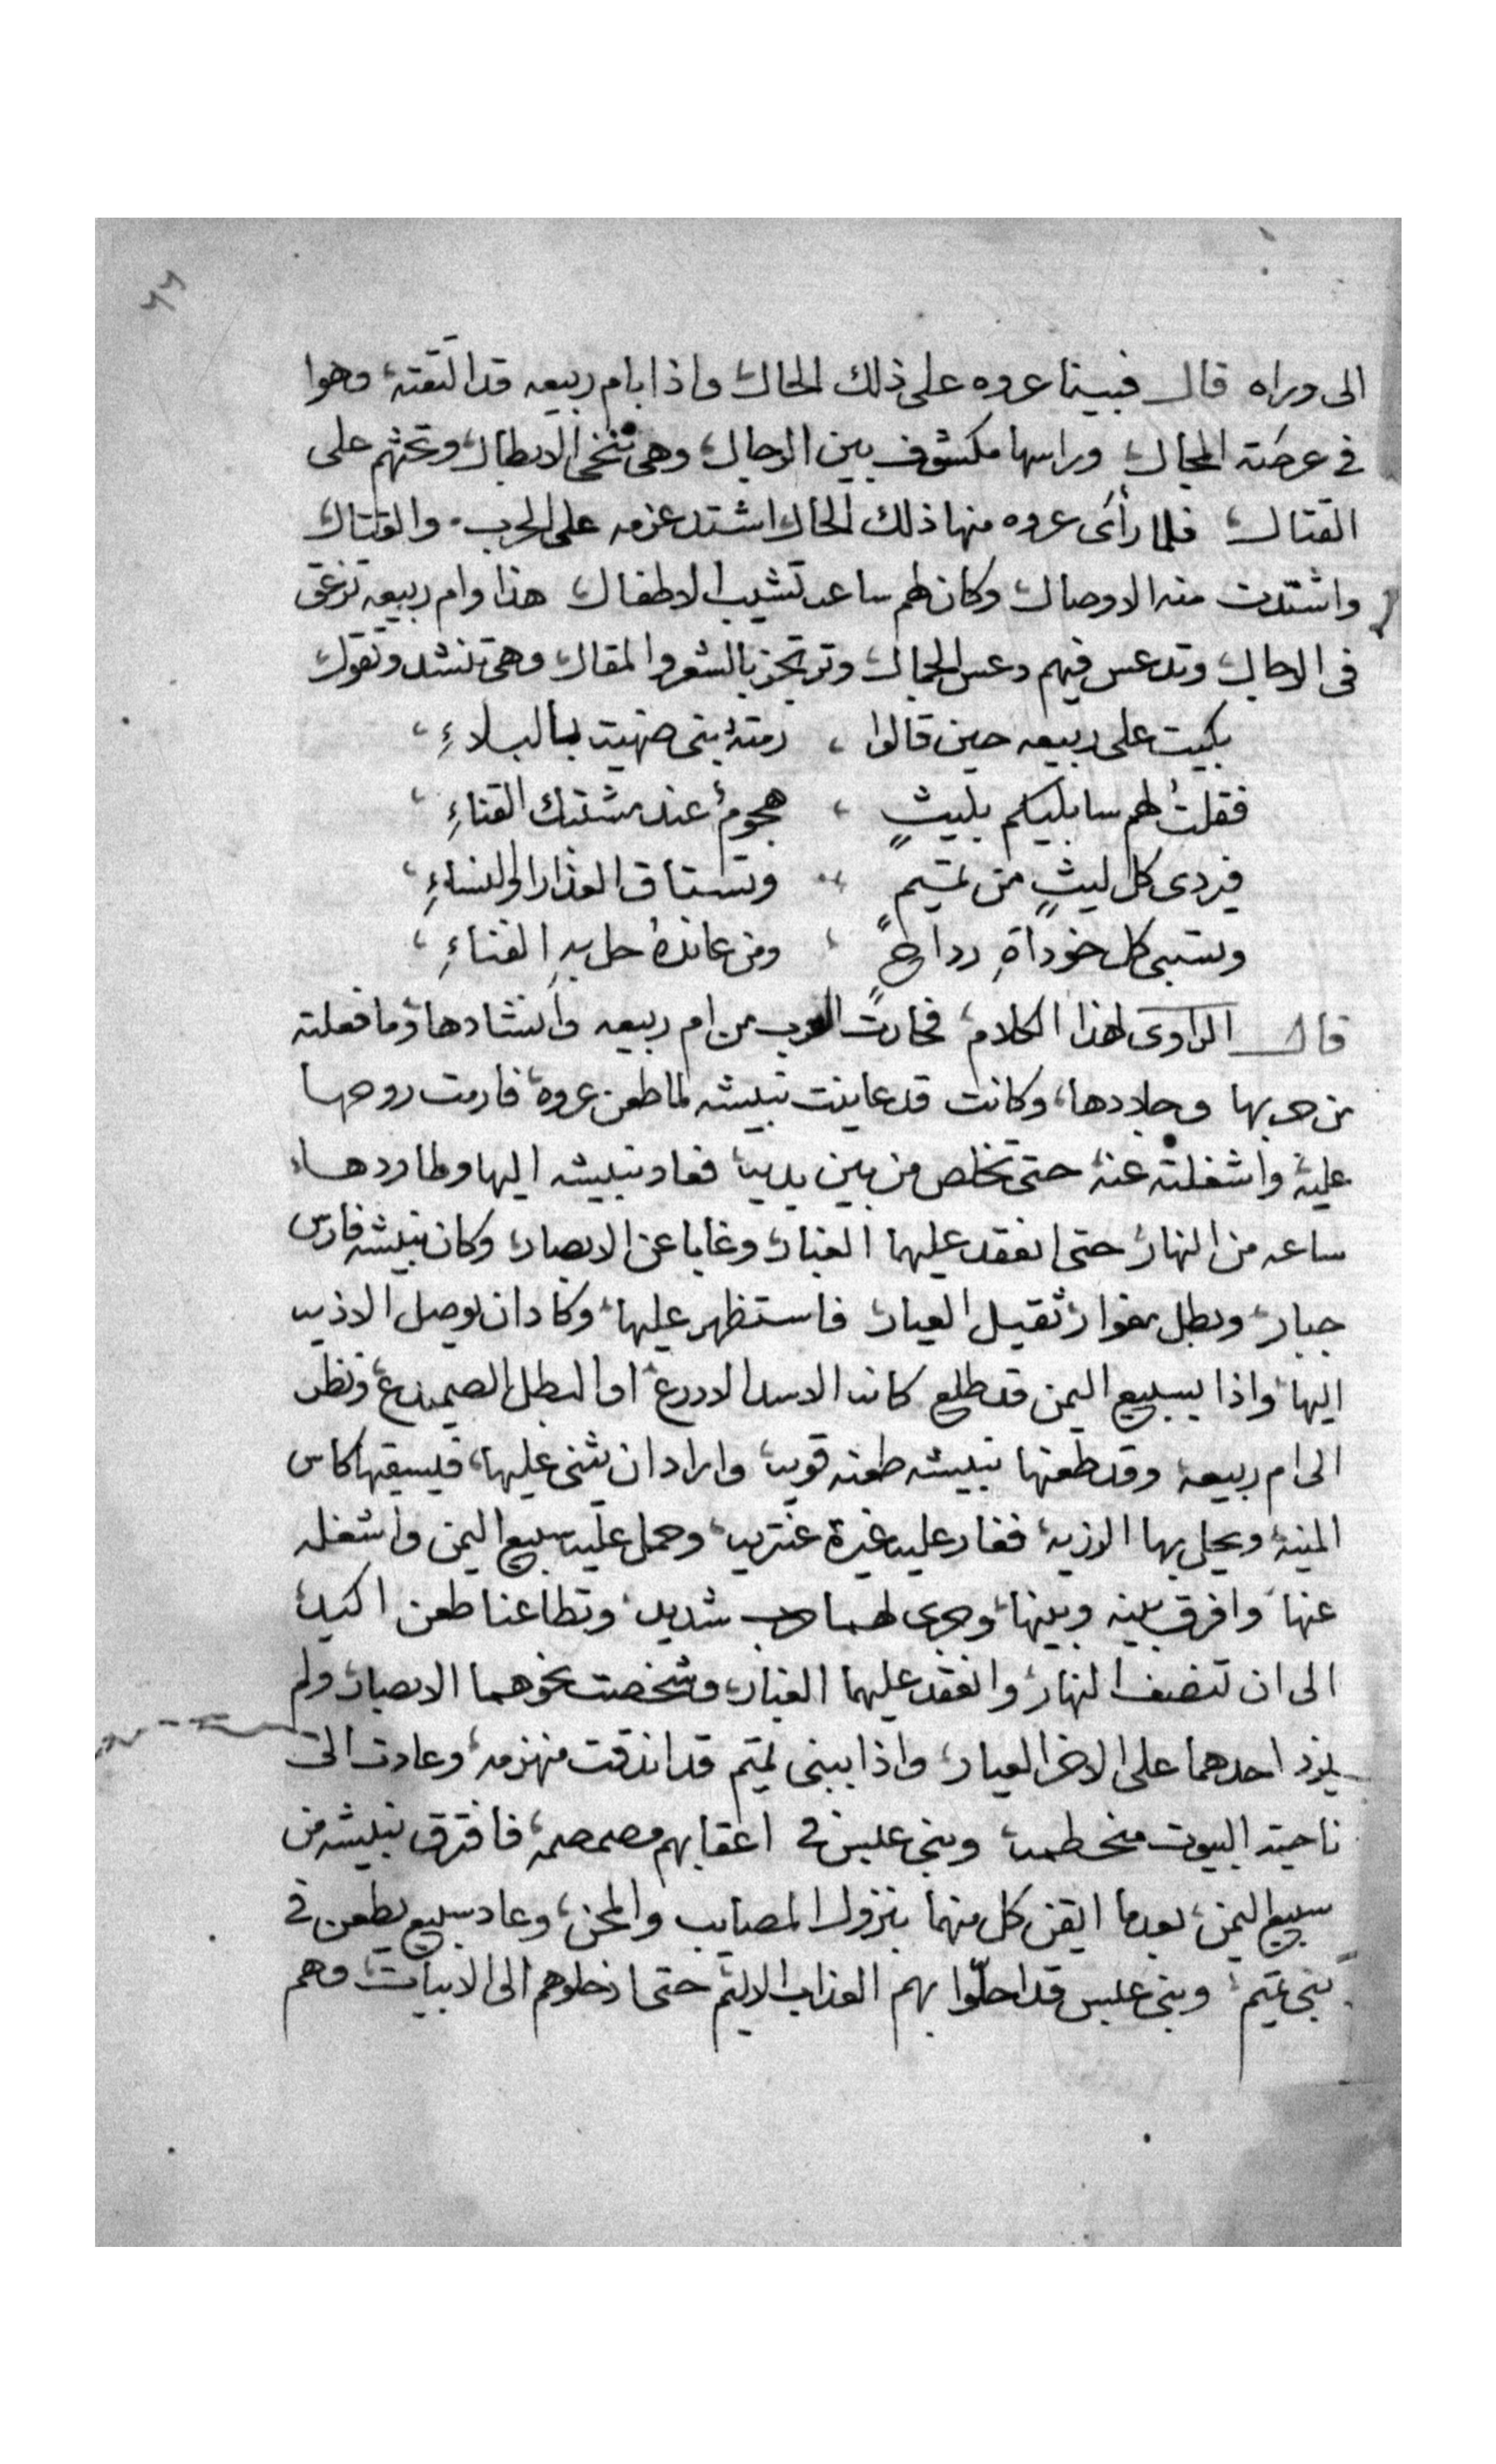 ٦٦
الى وراه قال فبينا عروه على ذلك الحال واذا بام ربيعه قد التقته وهوا
في عرضة المجال وراسها مكشوف بين الرجال وهي تنخي الابطال وتحثهم على
القتال فلما رأى عروه منها ذلك الحال اشتد عزمه على الحرب والقتال
واشتدت منه الاوصال وكان لهم ساعه تشيب الاطفال هذا وام ربيعه تزعق
في الرجال وتدعس فيهم دعس الجمال وترتجز بالشعر والمقال وهي تنشد وتقول
بكيت على ربيعه حين قالوا ، رمته بني بالبلاءِ ،
فقلتُ لهم سابليكم بليثٍ ، هجومٌ عند مشتبك القناءِ ،
فيردي كل ليثٍ من تميم ، وتستاق العذارا والنساءِ ،
وتسبي كل خوداةِ رداحٍ ، ومن عاندهُ حل بهِ الفناءِ ،
قال الراوى لهذا الكلام فحارت العرب من ام ربيعه وانشادها وما فعلته
من حربها وجلادها، وكانت قد عاينت نبيشه لما طعن عروه، فارمت روحها
عليه واشغلته عنه حتى تخلص من بين يديه فعاد نبيشه اليها وطاردها
ساعه من النهار حتى انعقد عليهما الغبار وغابا عن الابصار وكان نبيشه فارس
جبار وبطل مغوار ثقيل العيار فاستظهر عليها وكاد ان يوصل الاذيه
اليها واذا بسبيع اليمن قد طلع كانه الاسد الادرع او البطل الصميدع ونظر
الى ام ربيعه وقد طعنها نبيشه طعنه قويه واراد ان يثني عليها، فيسقيها كاس
المنيه ويحل بها الرزيه فغار عليه غيرة عنتريه وحمل عليه سبيع اليمن واشغله
عنها وافرق بينه وبينها وجرى لهما حرب شديد وتطاعنا طعن اكيد
الى ان تنصف النهار وانعقد عليهما الغبار وشخصت نحوهما الابصار ولم
يزد احدهما على الاخر العيار واذا ببنى تميم قد اندقت منهزمه وعادت الى
ناحية البيوت منحطمه وبنى عبس في اعقابهم مصمصمه فافترق نبيشه من
سبيع اليمن، بعدما ايقن كل منهما بنزول المصايب والمحن، وعاد سبيع يطعن في
بني تميم وبنى عبس قد احلّوا بهم العذاب الاليم حتى ادخلوهم الى الابيات وهم